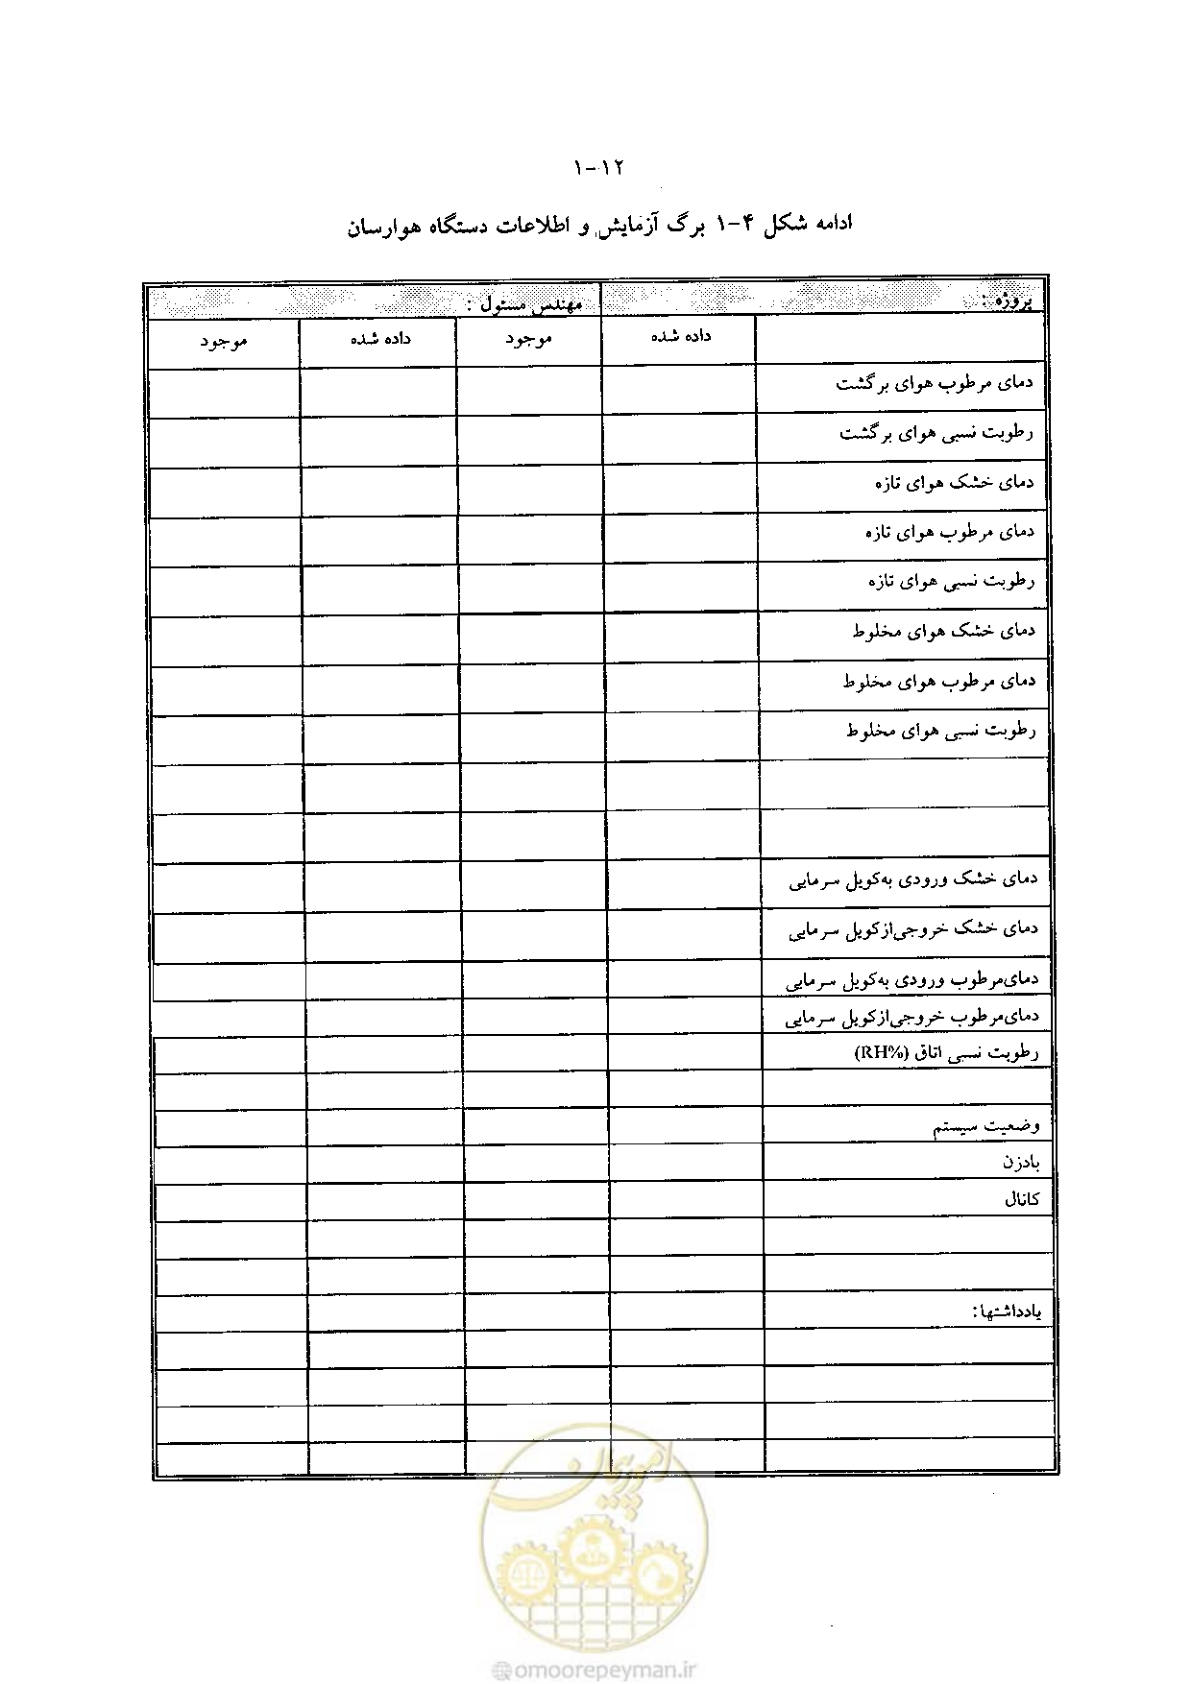 ۱-۱۲
ادامه شکل ۴-۱ برگ آزمایش و اطلاعات دستگاه هوارسان
پروژه : مهندس مسئول :
داده شده موجود داده شده موجود
دمای مرطوب هوای برگشت
رطوبت نسبی هوای برگشت
دمای خشک هوای تازه
دمای مرطوب هوای تازه
رطوبت نسبی هوای تازه
دمای خشک هوای مخلوط
دمای مرطوب هوای مخلوط
رطوبت نسبی هوای مخلوط
دمای خشک ورودی به‌کویل سرمایی
دمای خشک خروجی‌ازکویل سرمایی
دمای‌مرطوب ورودی به‌کویل سرمایی
دمای‌مرطوب خروجی‌ازکویل سرمایی
رطوبت نسبی اتاق (RH%)
وضعیت سیستم
بادزن
کانال
یادداشتها:
امور پیمان
@omoorepeyman.ir